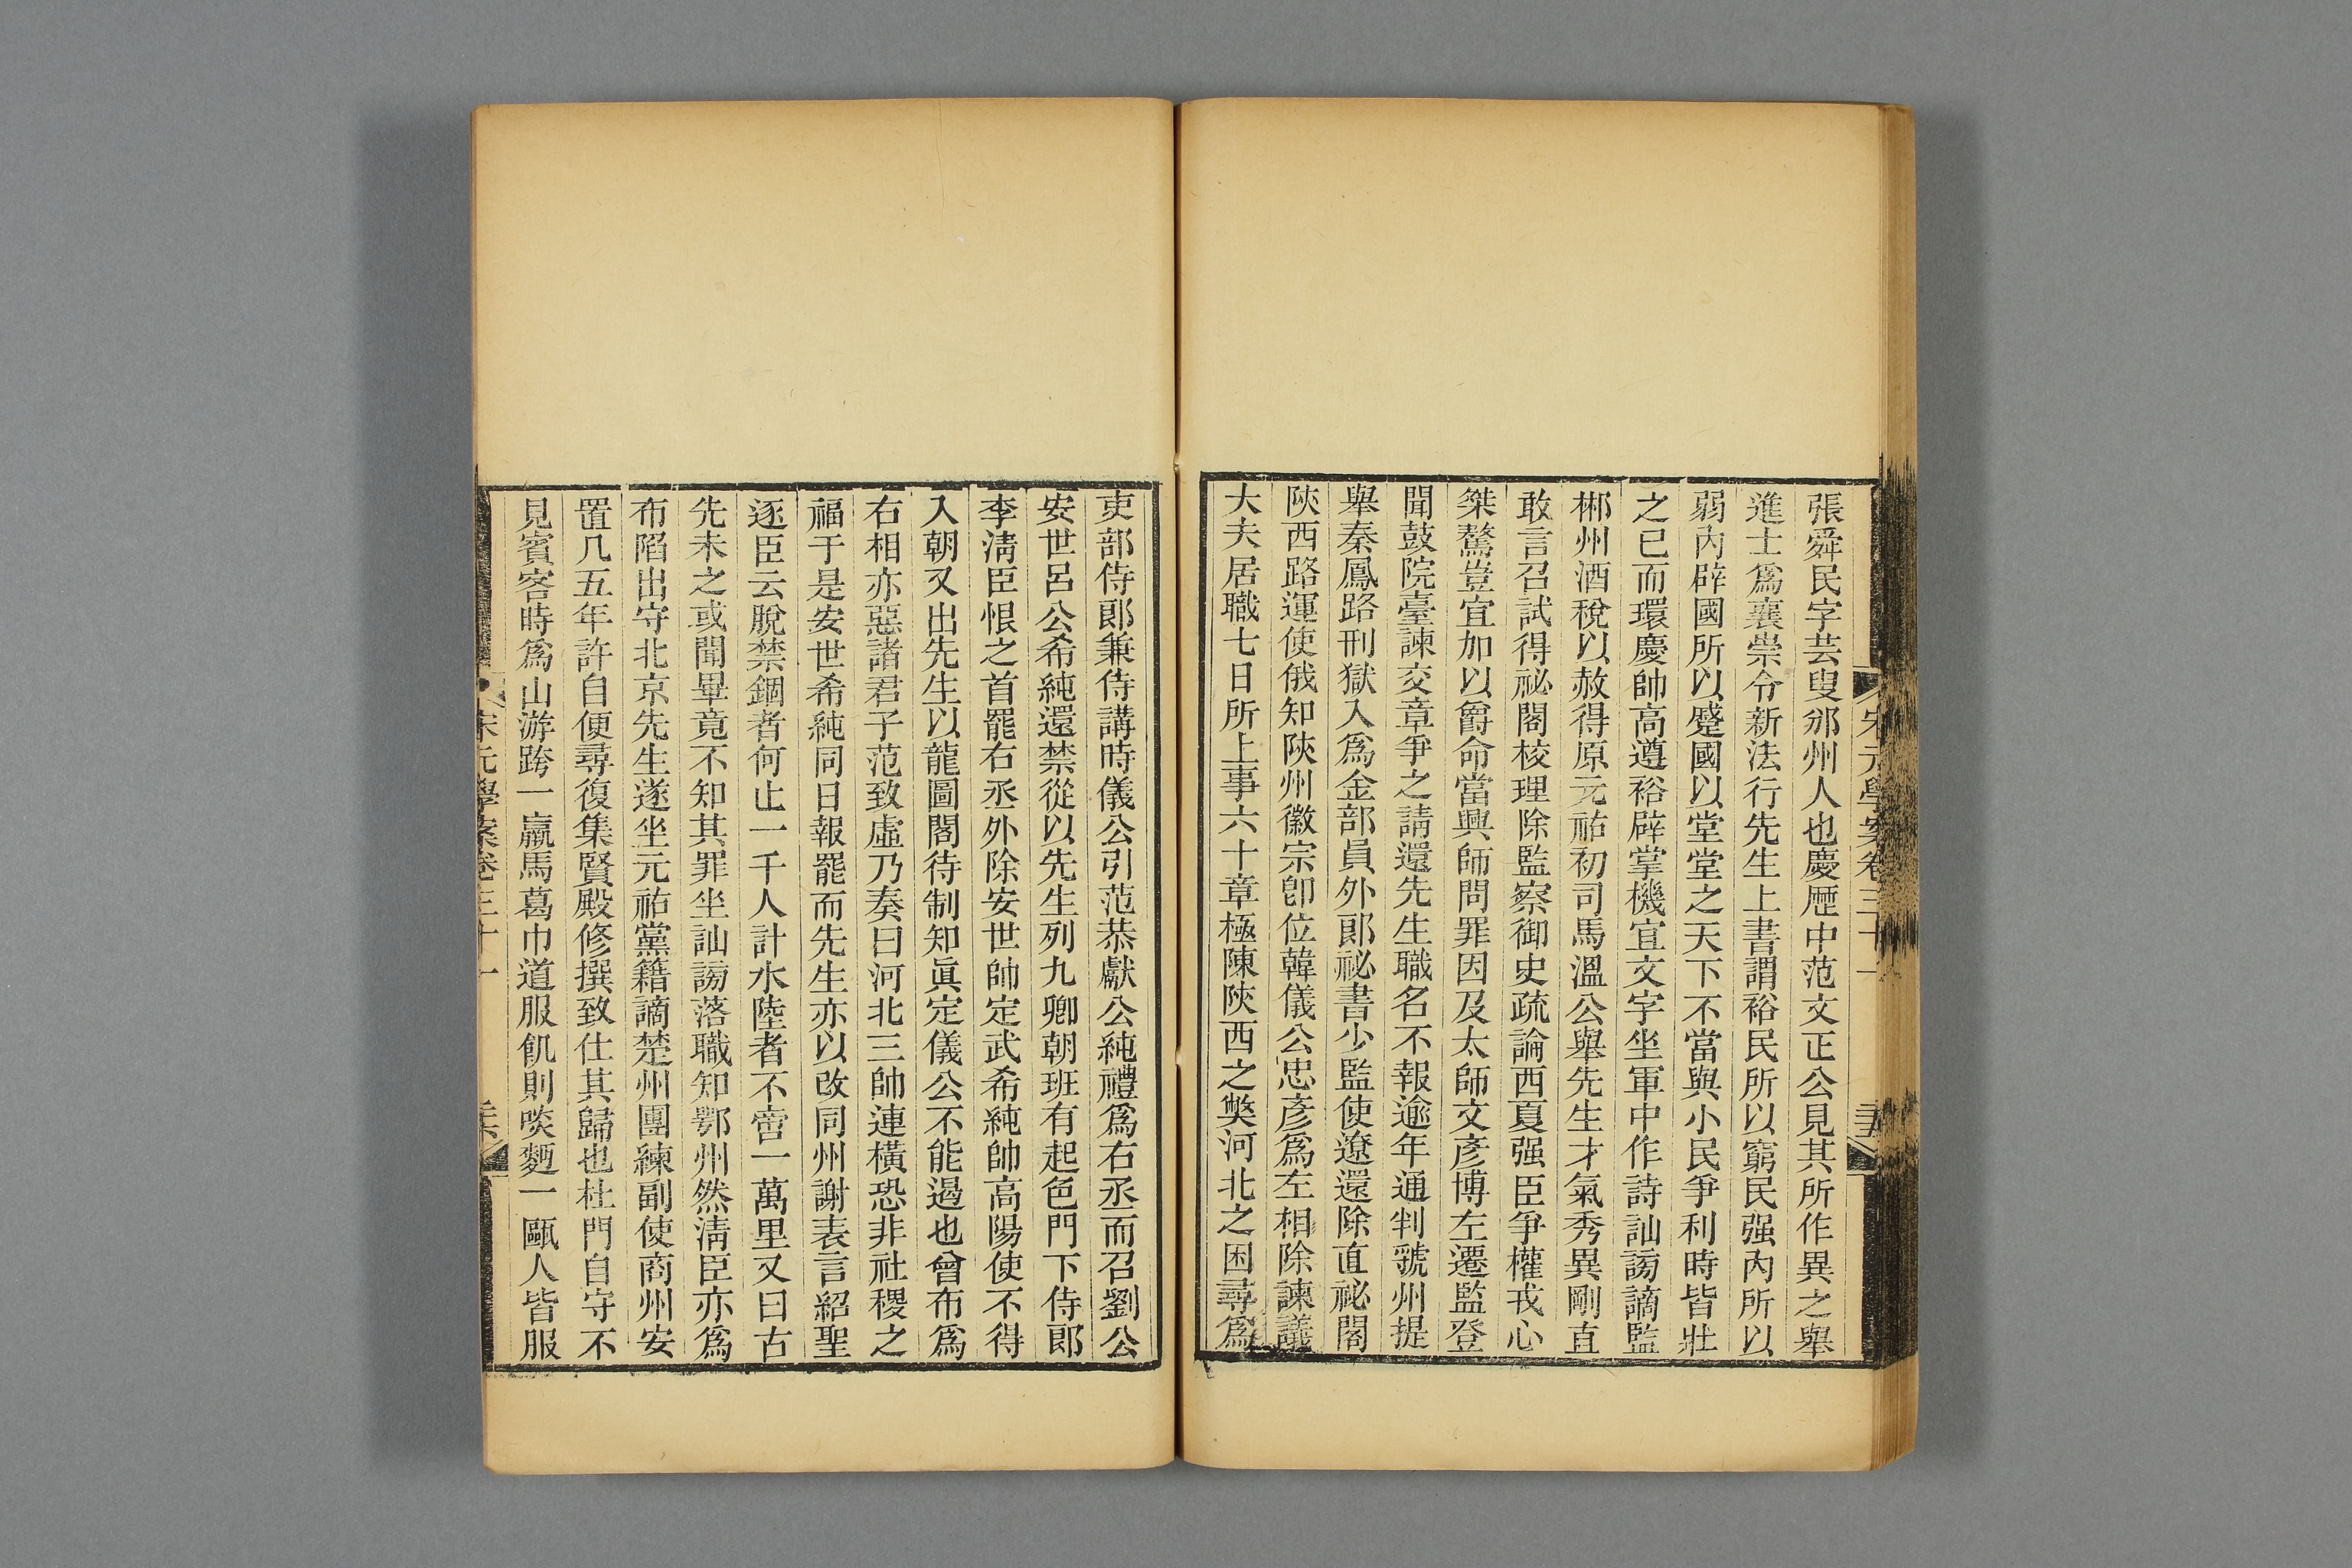 宋元學案卷三十一
張舜民字芸叟邠州人也慶歷中范文正公見其所作異之舉
進士爲襄樂令新法行先生上書謂裕民所以窮民强內所以
弱內辟國所以蹙國以堂堂之天下不當與小民爭利時皆壯
之已而環慶帥高遵裕辟掌機宜文字坐軍中作詩訕謗謫監
郴州酒稅以赦得原元祐初司馬溫公舉先生才氣秀異剛直
敢言召試得祕閣校理除監察御史疏論西夏强臣爭權戎心
桀驁豈宜加以爵命當興師問罪因及太師文彥博左遷監登
聞鼓院臺諫交章爭之請還先生職名不報逾年通判虢州提
舉秦鳳路刑獄入爲金部員外郎祕書少監使遼還除直祕閣
陝西路運使俄知陝州徽宗卽位韓儀公忠彥爲左相除諫議
大夫居職七日所上事六十章極陳陝西之獘河北之困尋爲
吏部侍郎兼侍講時儀公引范恭獻公純禮爲右丞而召劉公
安世呂公希純還禁從以先生列九卿朝班有起色門下侍郎
李淸臣恨之首罷右丞外除安世帥定武希純帥高陽使不得
入朝又出先生以龍圖閣待制知眞定儀公不能遏也曾布爲
右相亦惡諸君子范致虛乃奏曰河北三帥連橫恐非社稷之
福于是安世希純同日報罷而先生亦以改同州謝表言紹聖
逐臣云脫禁錮者何止一千人計水陸者不啻一萬里又曰古
先未之或聞畢竟不知其罪坐訕謗落職知鄂州然淸臣亦爲
布陷出守北京先生遂坐元祐黨籍謫楚州團練副使商州安
置凡五年許自便尋復集賢殿修撰致仕其歸也杜門自守不
見賓客時爲山游跨一羸馬葛巾道服飢則啖麪一甌人皆服
宋元學案卷三十一